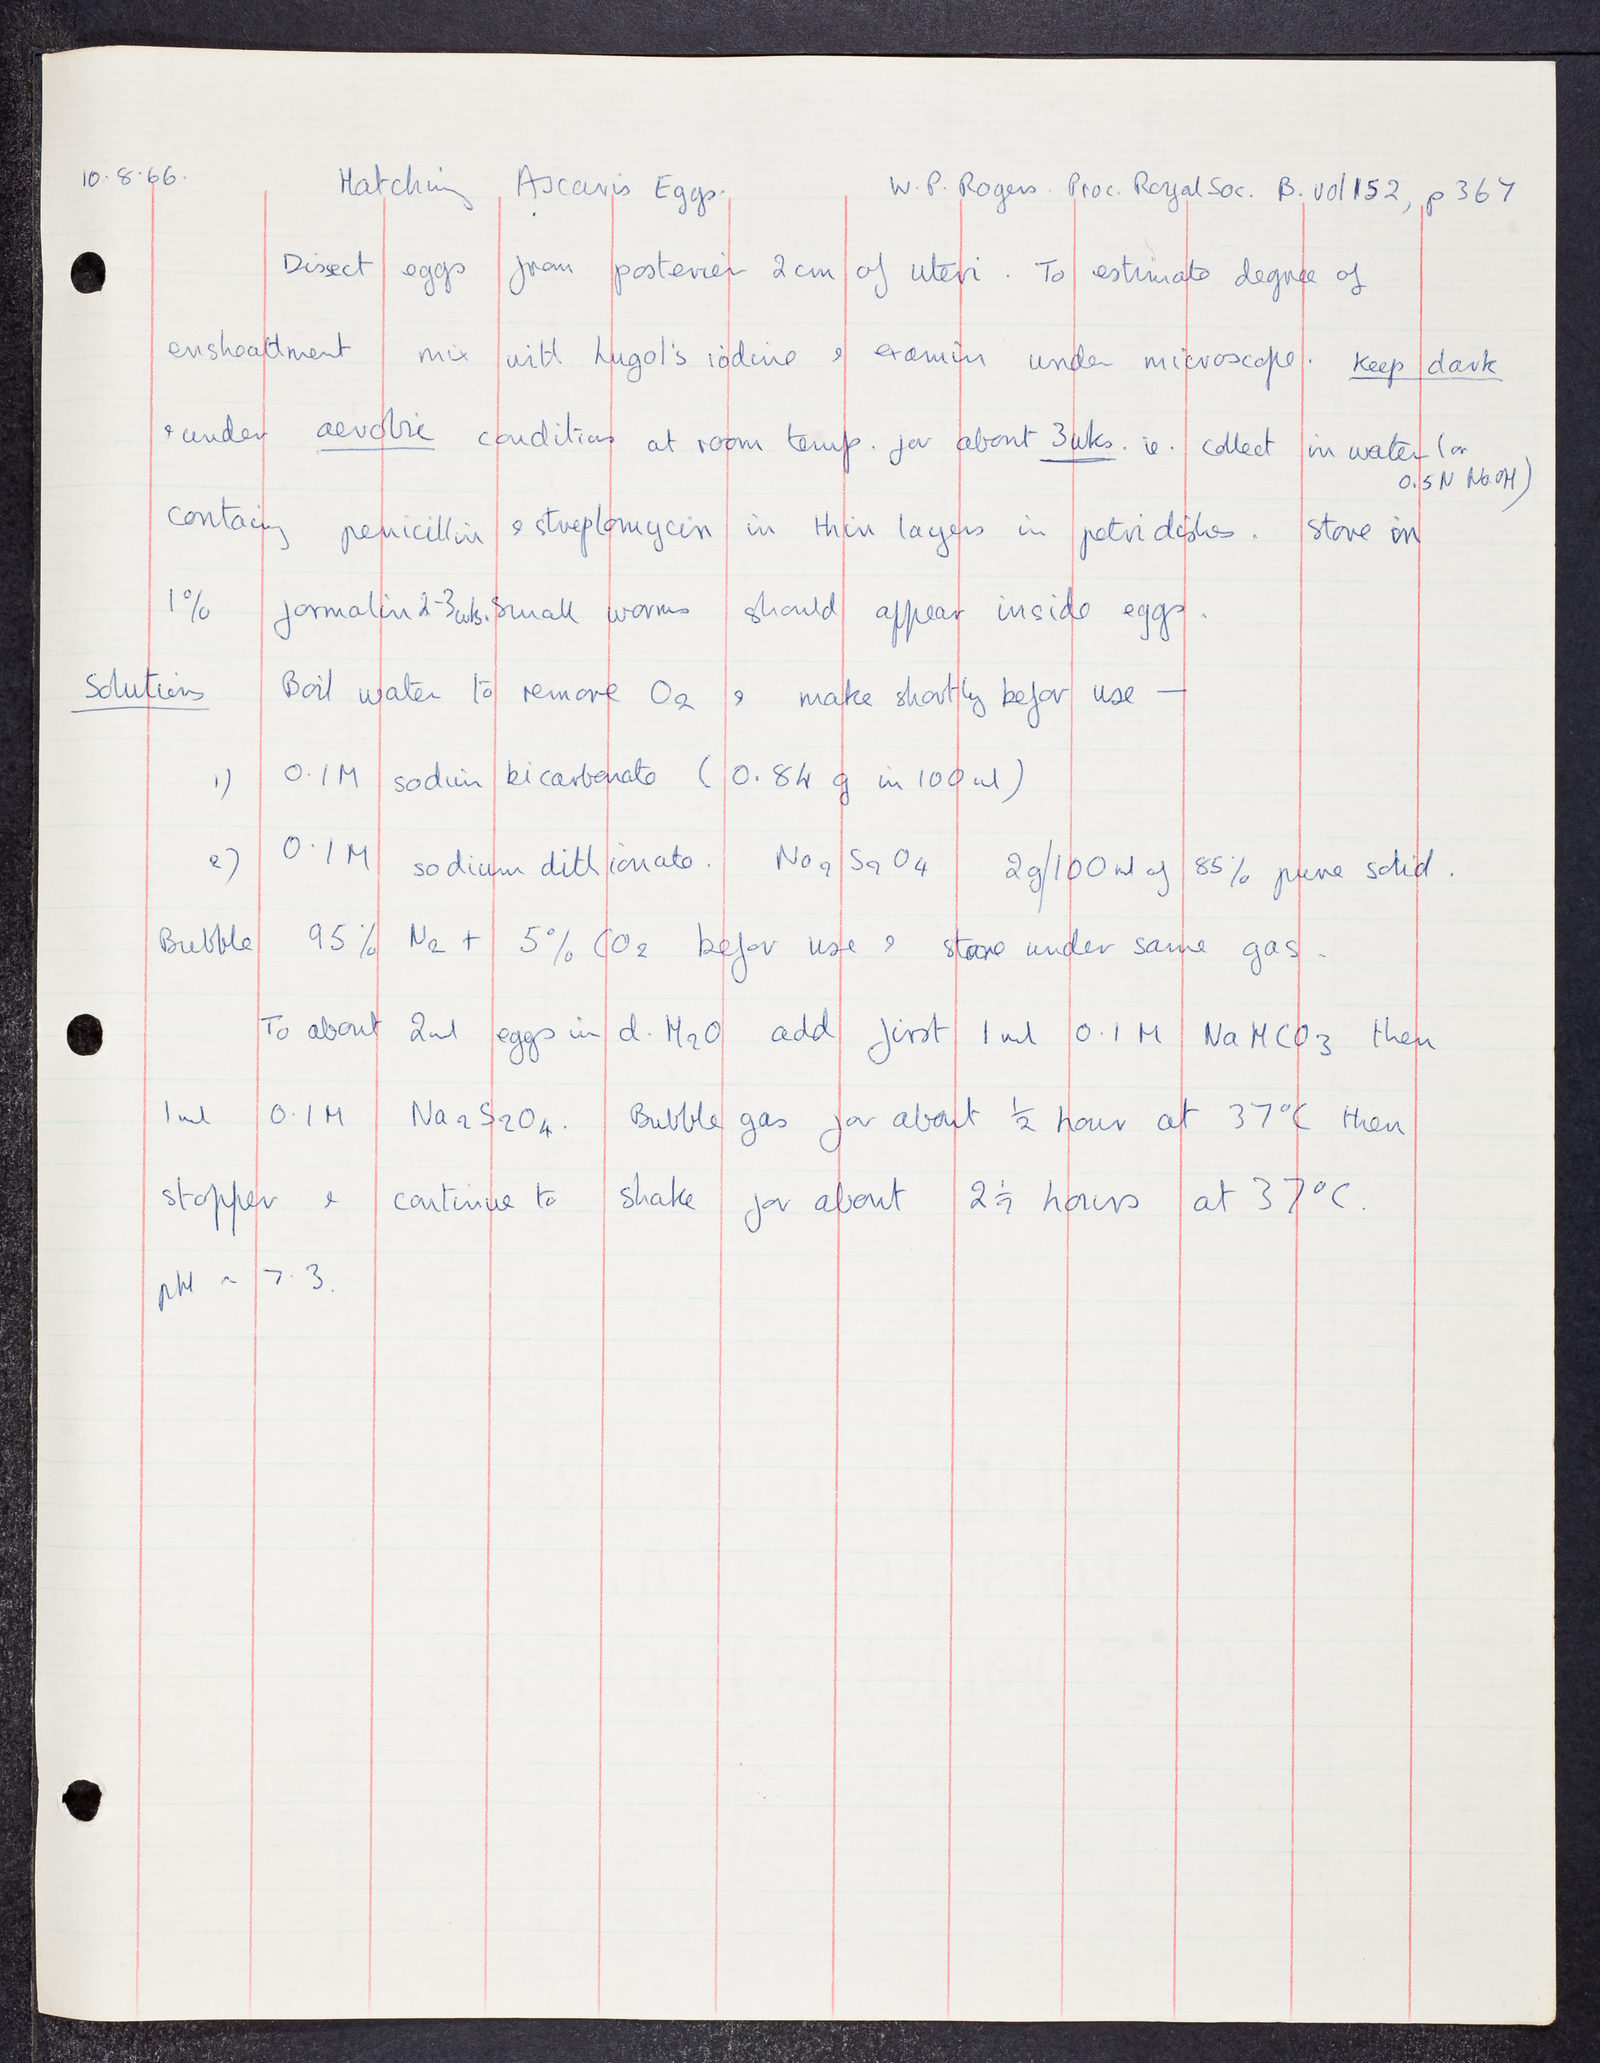 10.8.66. Hatching Ascaris Eggs. W.P. Rogers. Proc. Royal Soc. B. vol 152, p 367
Disect eggs from posterior 2cm of uteri. To estimate degree of
ensheattment mix with Lugol's iodine & examin under microscope. Keep dark
& under aerobic conditions at room temp. for about 3wks. ie. collect in water (or
0.5N NaOH)
containg penicillin & streptomycin in thin layers in petri dishes. Store in
1% formalin 2-3wks. Small worms should appear inside eggs.
Solutions Boil water to remove O2 & make shortly befor use —
1) 0.1M sodium bicarbonate (0.84 g in 100ml)
2) 0.1M sodium dithionate. Na2S2O4 2g/100ml of 85% pure solid.
Bubble 95% N2 + 5% CO2 befor use & store under same gas.
To about 2ml eggs in d.H2O add first 1ml 0.1M NaHCO3 then
1ml 0.1M Na2S2O4. Bubble gas for about ½ hour at 37°C then
stopper & continue to shake for about 2½ hours at 37°C.
pH ~ 7.3.